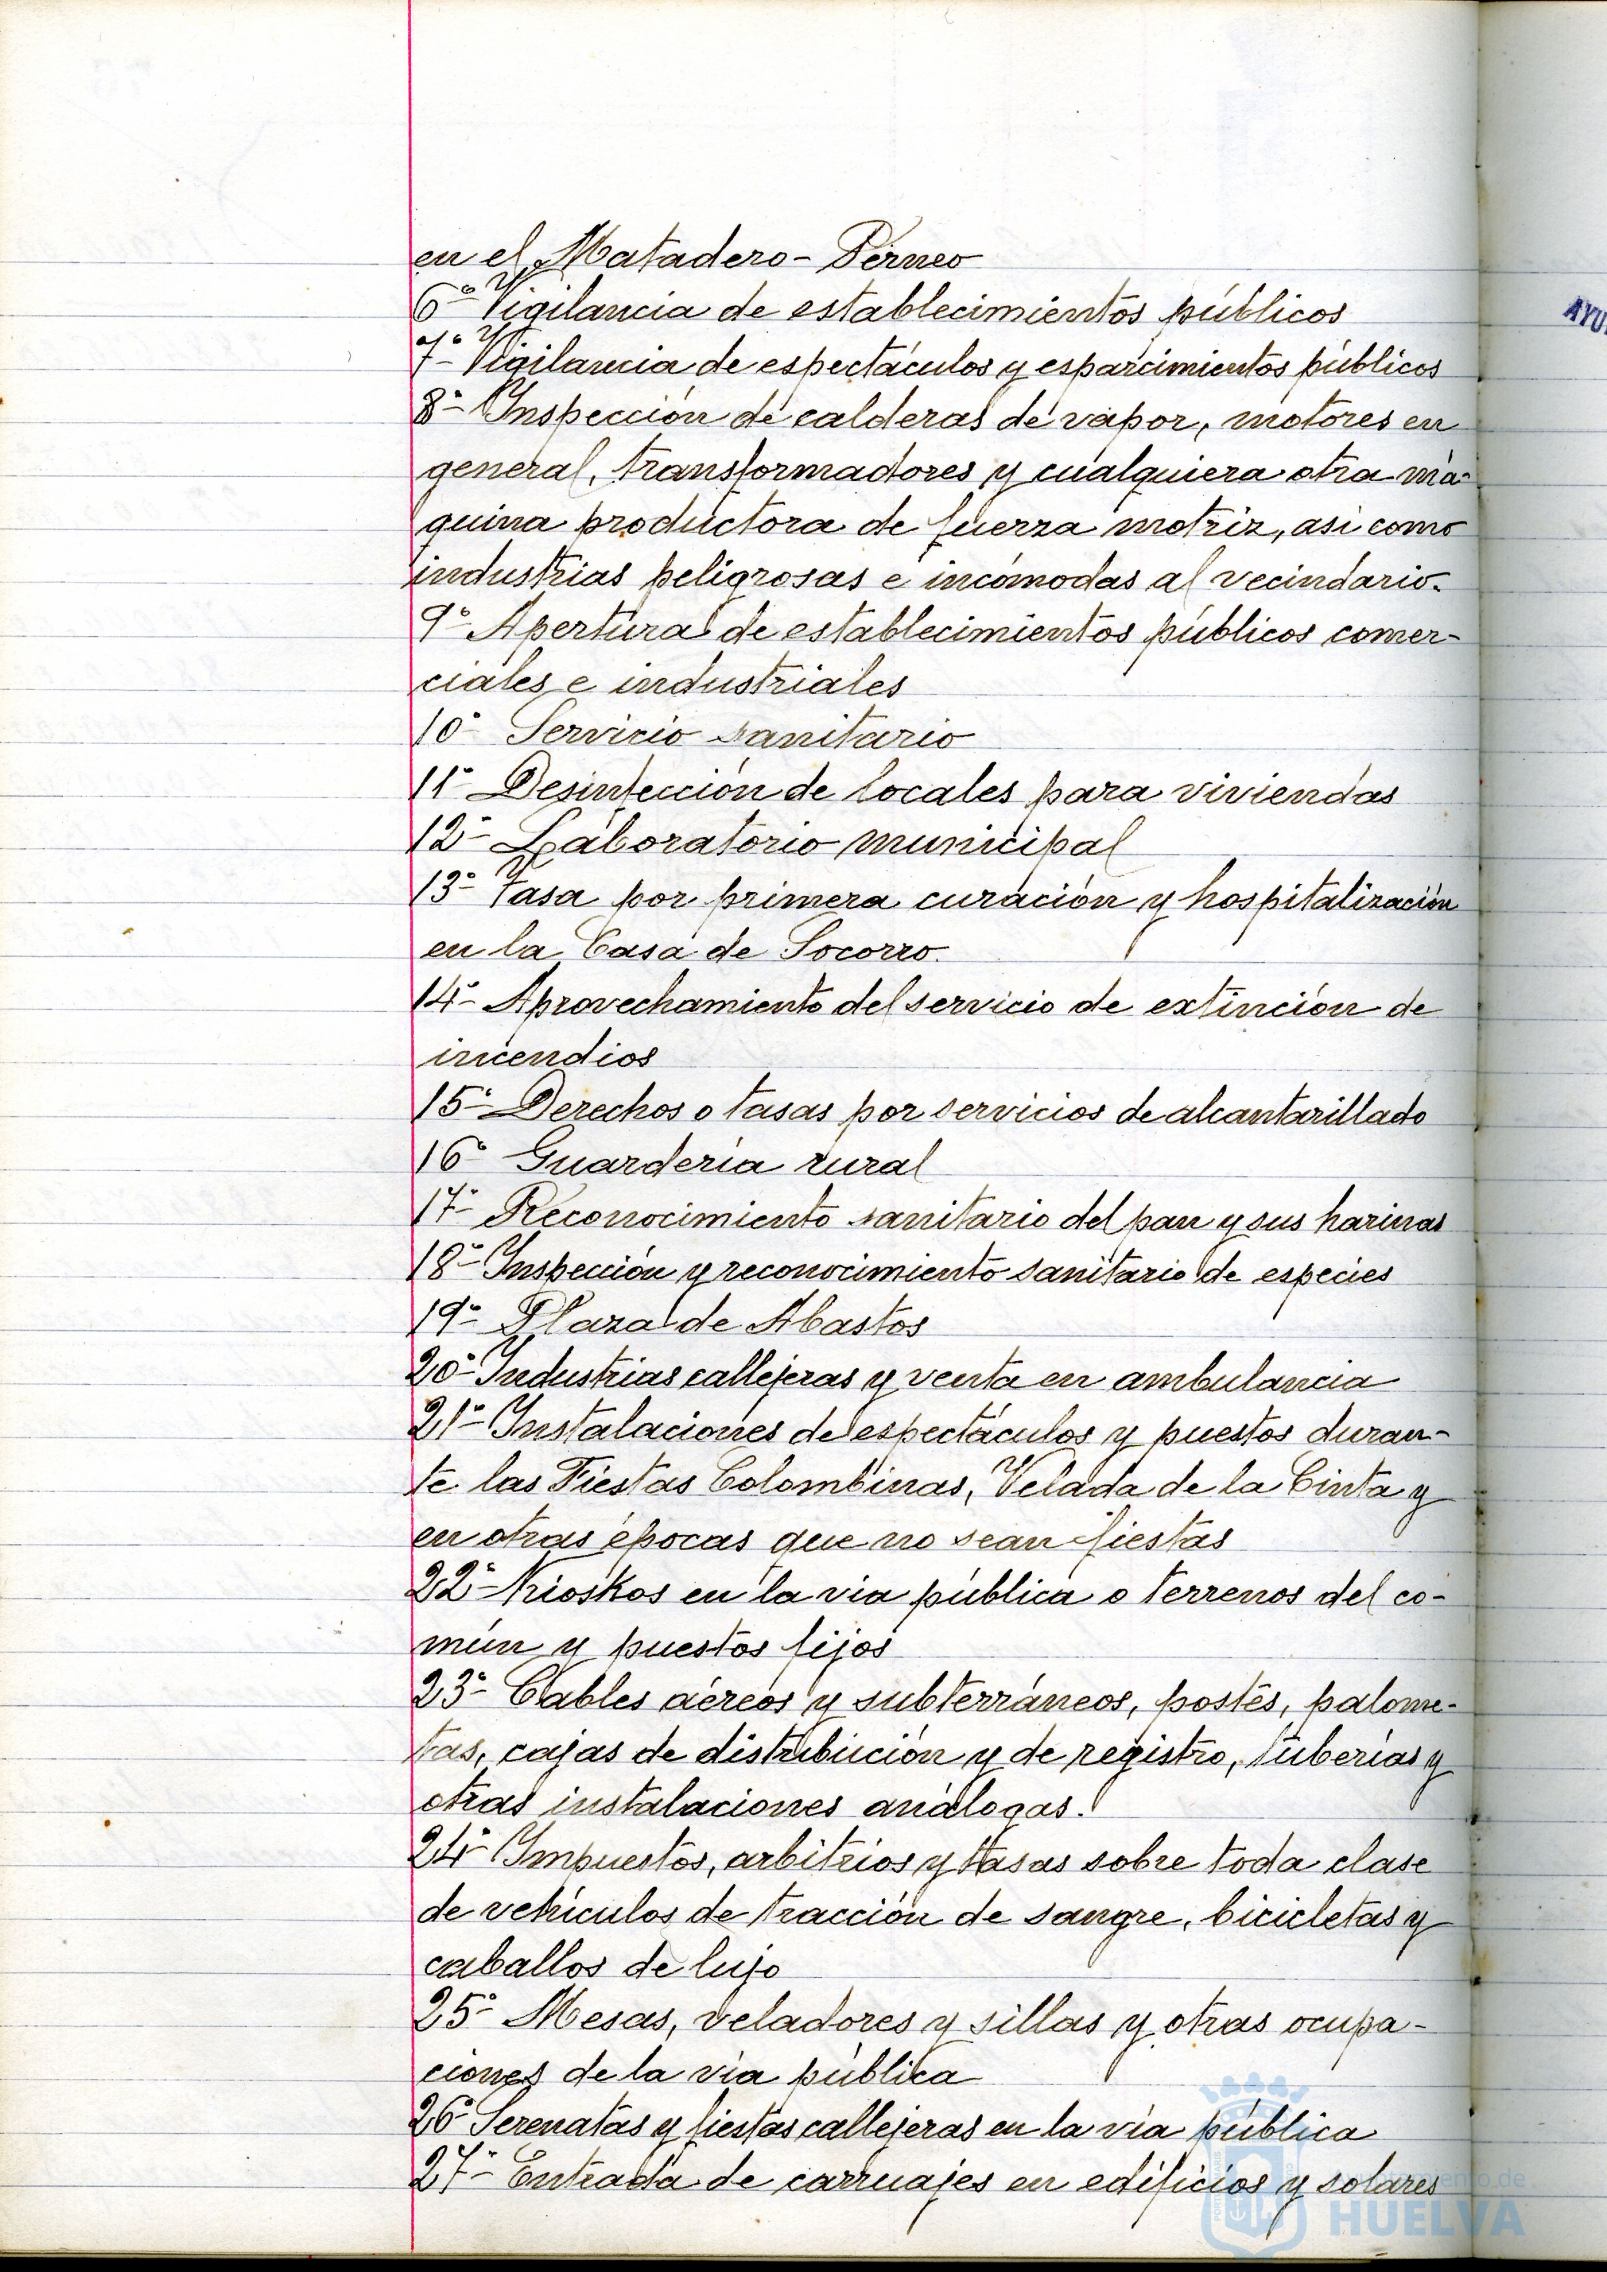 en el Matadero-Perneo
6º- Vigilancia de establecimientos públicos
7º- Vigilancia de espectáculos y esparcimientos públicos
8º- Inspección de calderas de vapor, motores en
general, transformadores y cualquiera otra má-
quina productora de fuerza motriz, así como
industrias peligrosas e incómodas al vecindario.
9º- Apertura de establecimientos públicos comer-
ciales e industriales
10º- Servicio sanitario
11º- Desinfección de locales para viviendas
12º- Laboratorio municipal
13º- Tasa por primera curación y hospitalización
en la Casa de Socorro.
14º- Aprovechamiento del servicio de extinción de
incendios
15º- Derechos o tasas por servicios de alcantarillado
16º- Guardería rural
17º- Reconocimiento sanitario del pan y sus harinas
18º- Inspección y reconocimiento sanitario de especies
19º- Plaza de Abastos
20º- Industrias callejeras y venta en ambulancia
21º- Instalaciones de espectáculos y puestos duran-
te las Fiestas Colombinas, Velada de la Cinta y
en otras épocas que no sean fiestas
22º- Krioskos en la vía pública o terrenos del co-
mún y puestos fijos
23º- Cables aéreos y subterráneos, postes, palome-
tas, cajas de distribución y de registro, tuberías y
otras instalaciones análogas.
24º- Impuestos, arbitrios y tasas sobre toda clase
de vehículos de tracción de sangre, bicicletas y
caballos de lujo
25º- Mesas, veladores y sillas y otras ocupa-
ciones de la vía pública
26º- Serenatas y fiestas callejeras en la vía pública
27º- Entrada de carruajes en edificios y solares
AYU
Ayuntamiento de
HUELVA